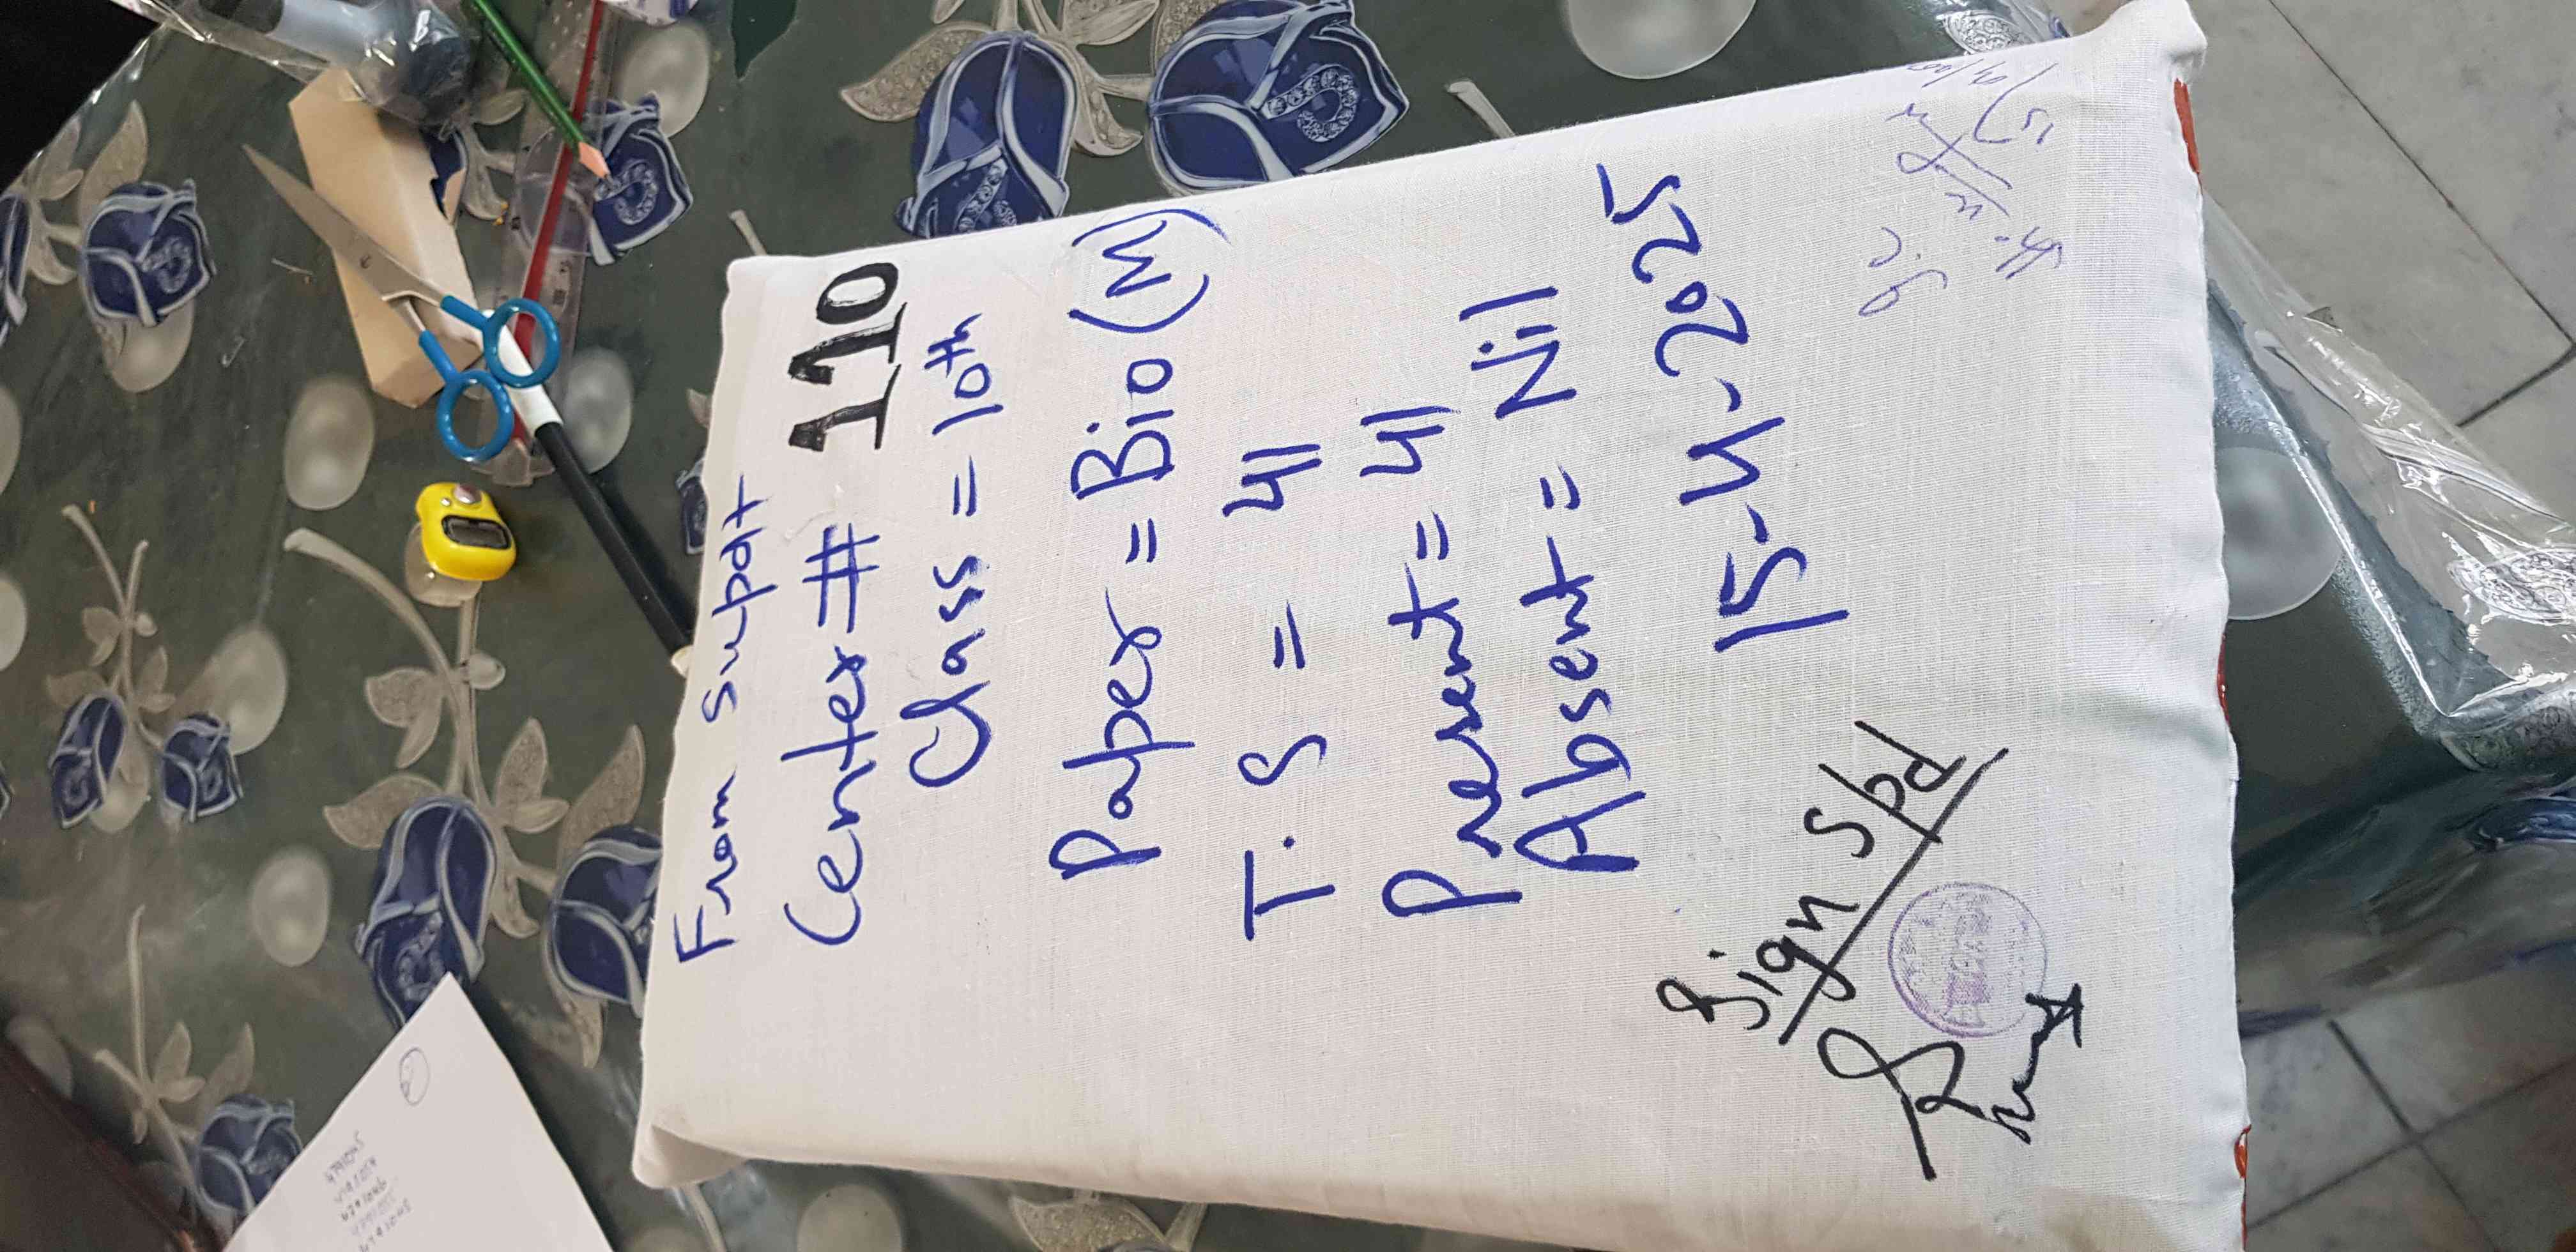 From Supdt
Center # 110
Class = 10th
Paper = Bio (M)
T.S = 41
Present = 41
Absent = Nil
15-4-2025
Sign Spd